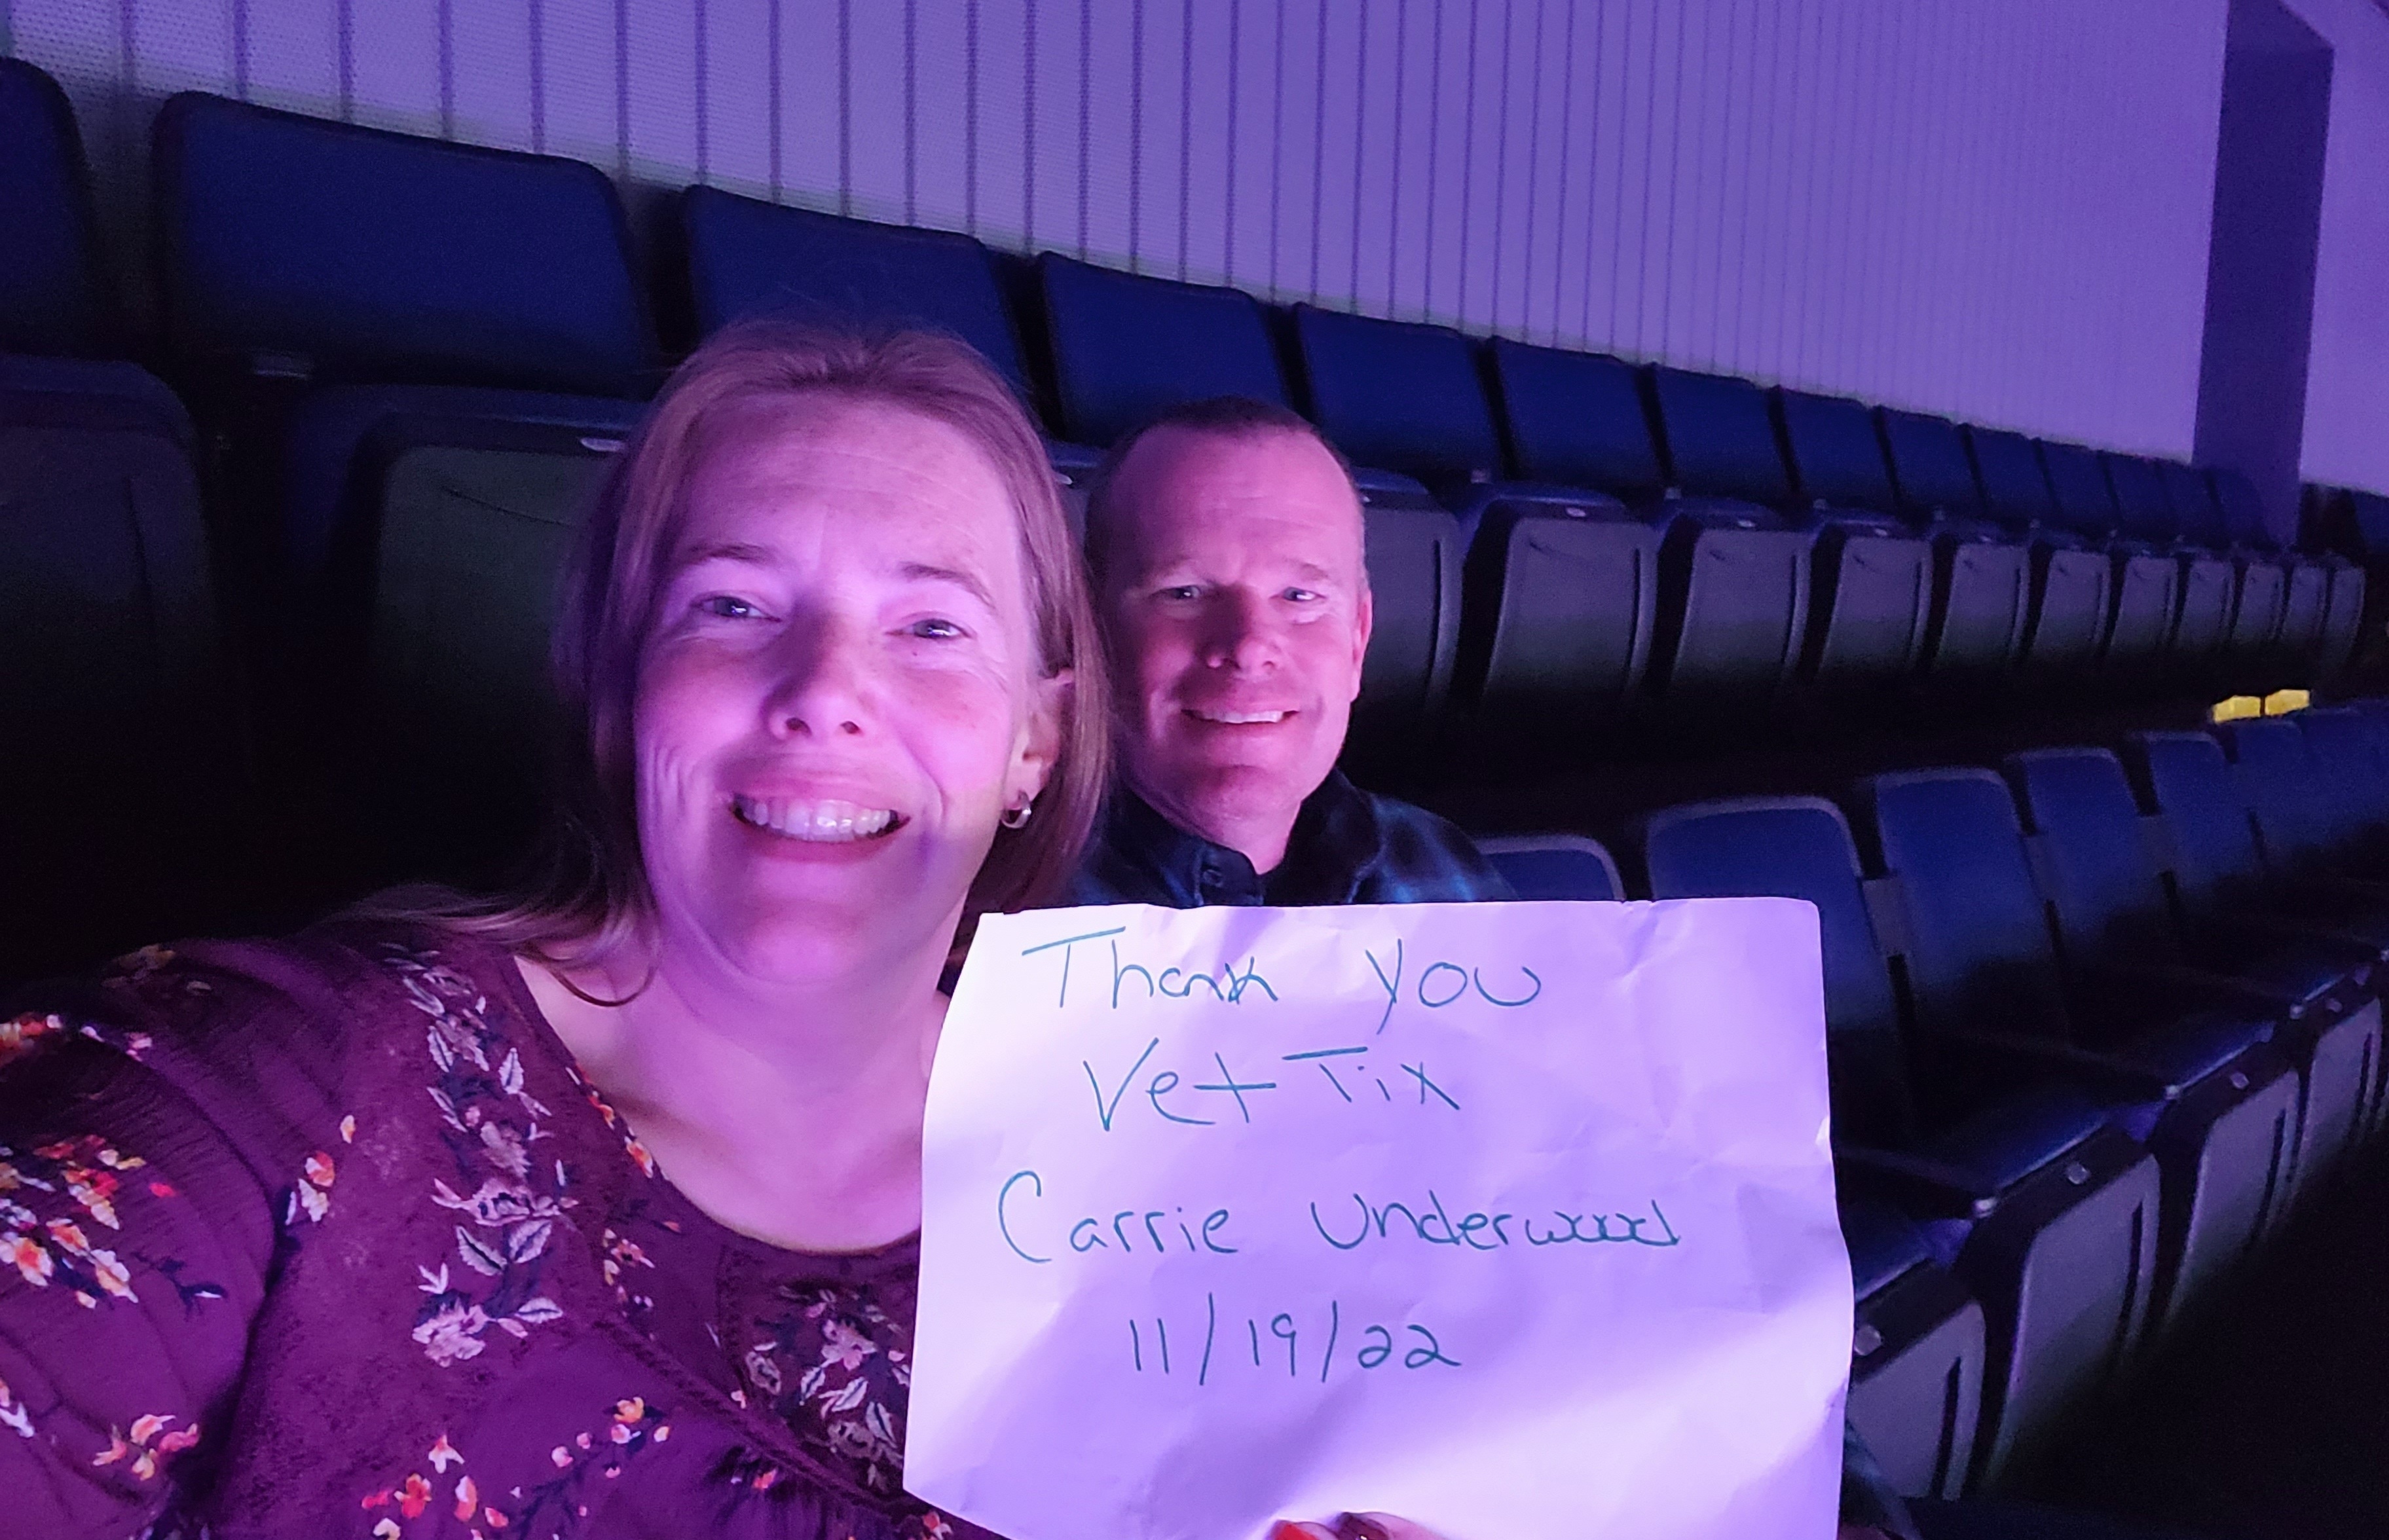 Thank You
Vet Tix
Carrie Underwood
11/19/22